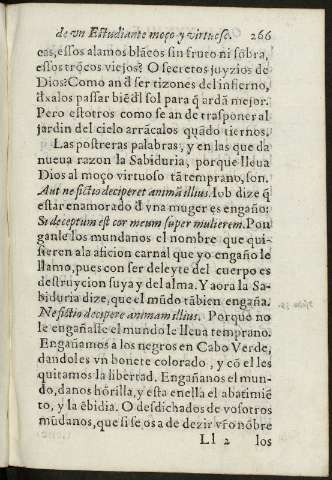 de vn Estudiante moço y virtuoso. 266
cas, essos alamos blãcos sin fruto ni sõbra,
essos trõcos viejos? O secretos juyzios de
Dios? Como an đ ser tizones del infierno,
đxalos passar biē đl sol para q̃ ardã mejor.
Pero estotros como se an de trasponer al
jardin del cielo arrãcalos quãdo tiernos.
Las postreras palabras, y en las que da
nueua razon la Sabiduria, porque lleua
Dios al moço virtuoso tã temprano, son.
Aut ne fictio deciperet animã illius. Iob dize q̃
estar enamorado đ vna muger es engaño:
Si deceptum est cor meum super mulierem. Pon
ganle los mundanos el nombre que qui-
sieren ala aficion carnal que yo engaño le
llamo, pues con ser deleyte del cuerpo es
destruycion suya y del alma. Y aora la Sa-
biduria dize, que el mũdo tãbien engaña.
Ne fictio decipere animam illius. Porque no
le engañasse el mundo le lleua temprano.
Engañamos a los negros en Cabo Verde,
dandoles vn bonete colorado, y cõ el les
quitamos la libertad. Engañanos el mun-
do, danos hõrilla, y esta enella el abatimiē
to, y la ēbidia. O desdichados de vosotros
mũdanos, que si se os a de dezir vr̃o nõbre
Ll 2 los